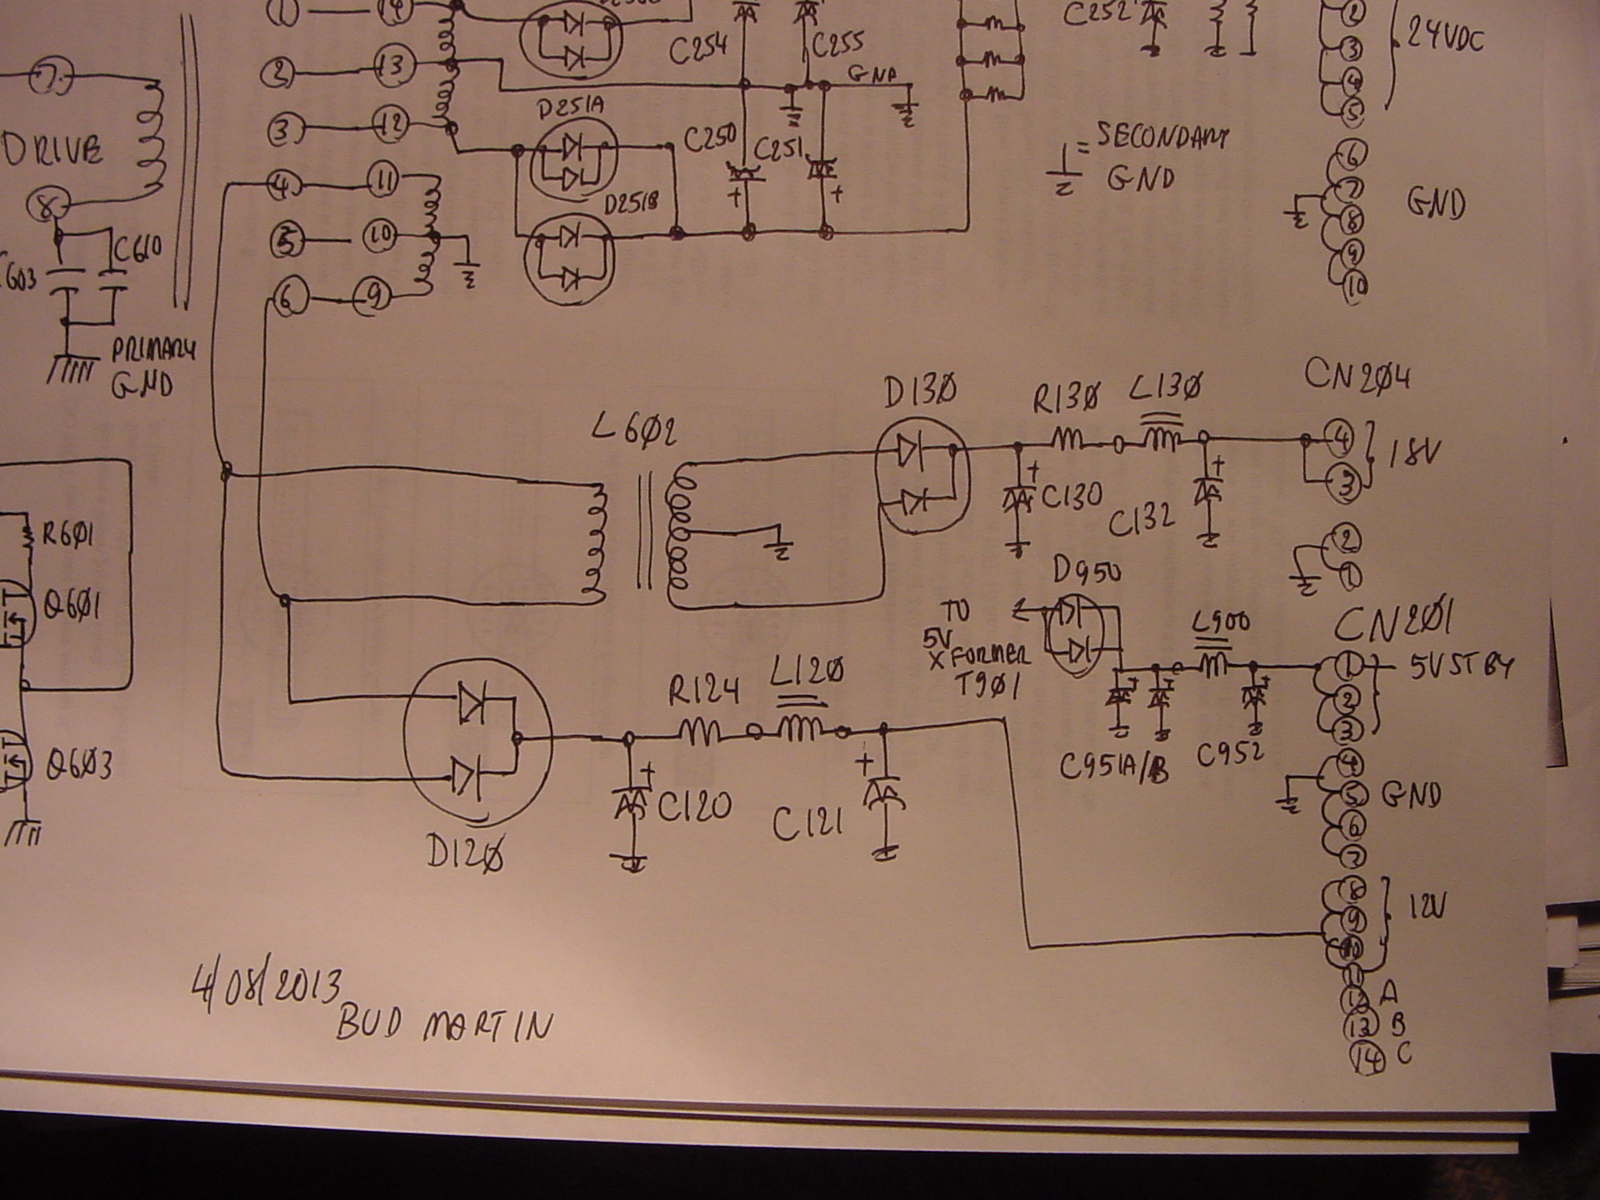 1
14
C254
C255
C252
2
3
4
5
24VDC
7
2
13
GND
DRIVE
3
12
D251A
C250
C251
+
+
= SECONDARY
GND
8
4
11
D251B
6
7
8
9
10
GND
C610
5
10
6
9
PRIMARY
GND
L602
D130
R130
L130
CN204
4
3
18V
+
C130
+
C132
2
1
R601
Q601
Q603
D950
TO
5V
XFORMER
T901
L900
CN201
1
2
3
5VSTBY
+
+
+
C951A/B
C952
4
5
6
7
GND
R124
L120
+
C120
+
C121
D120
8
9
10
11
12V
12 A
13 B
14 C
4/08/2013
BUD MARTIN